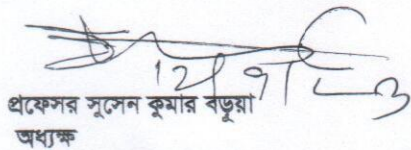 প্রফেসর সুসেন কুমার বড়ুয়া
অধ্যক্ষ